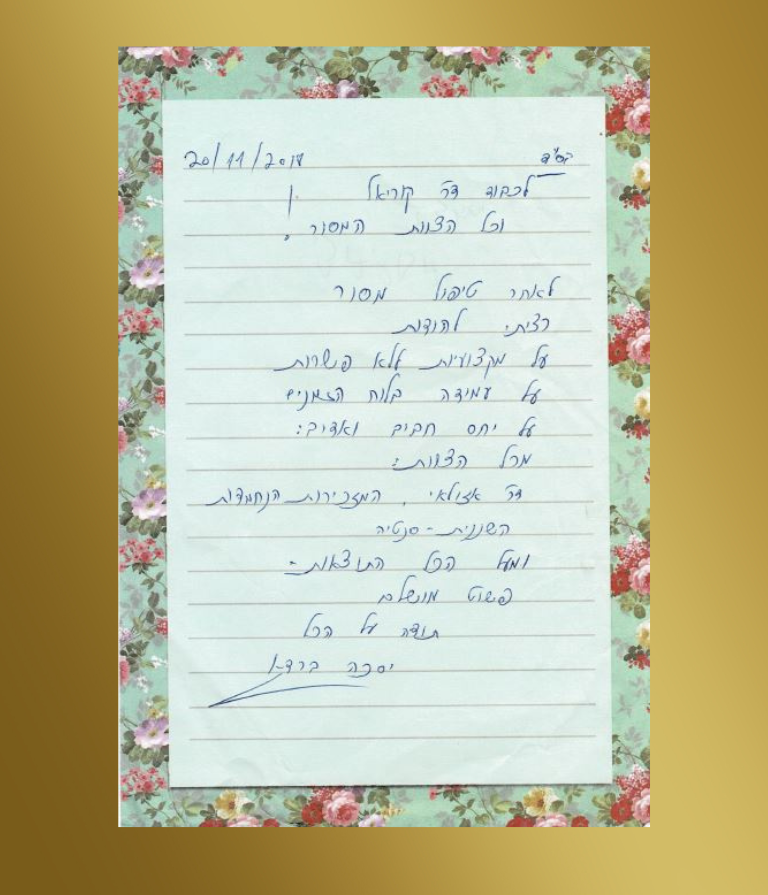 בס"ד 20/11/2017
לכבוד דר' קוריאל
וכל הצוות המסור,
לאחר טיפול מסור
רציתי להודות
על מקצועיות ללא פשרות
על עמידה בלוח הזמנים
על יחס חביב ואדיב:
מכל הצוות:
דר' אזולאי, המזכירות הנחמדות
השננית - סנטיה
ומעל הכל התוצאות -
פשוט מושלם
תודה על הכל
יסכה ברדא